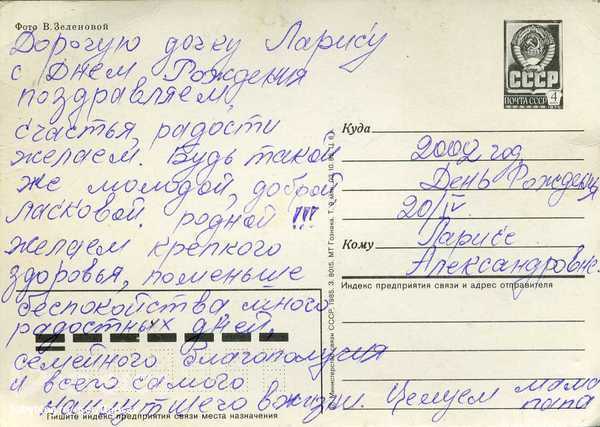 Фото В.Зеленовой
Дорогую дочку Ларису
с Днем Рождения
поздравляем,
счастья, радости
желаем. Будь такой
же молодой, доброй
ласковой родной!!!
желаем крепкого
здоровья, поменьше
беспокойства много
радостных дней,
семейного благополучия
и всего самого
наилутшего в жизни. Целуем мама
папа
Пишите индекс предприятия связи места назначения
СССР
ПОЧТА СССР 4
Куда
2002 год
День Рождения
20/IV.
Кому
Ларисе
Александровне.
Индекс предприятия связи и адрес отправителя